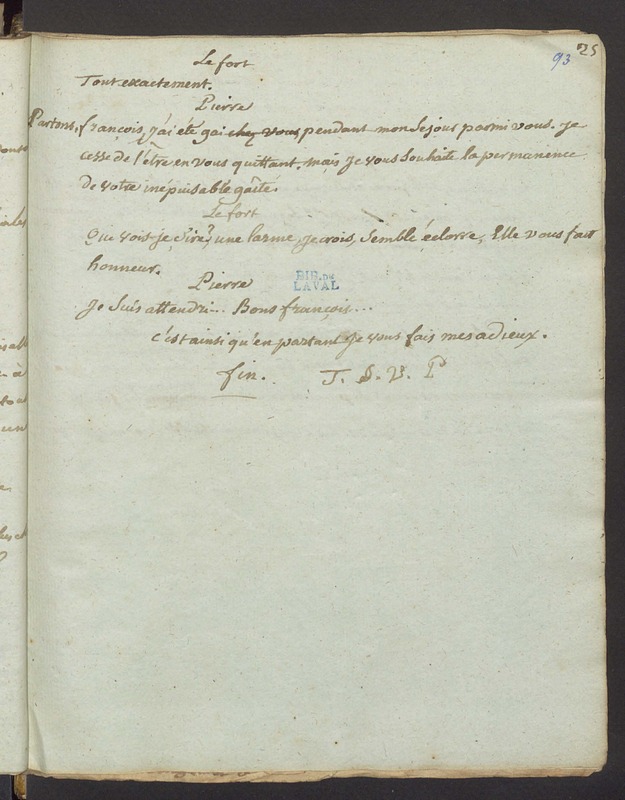 93 25
Le fort
Tout exactement.
Pierre
Partons, françois, j'ai été gai chez vous pendant mon séjour parmi vous. je
cesse de l'être en vous quittant. mais je vous souhaite la permanence
de votre inépuisable gaîté.
Le fort
Que vois-je, Sire, une larme, je crois, semble éclorre, Elle vous fait
honneur.
Pierre
BIB. DE
LAVAL
Je suis attendri... Bons françois...
c'est ainsi qu'en partant je vous fais mes adieux.
fin. T. S. V. P